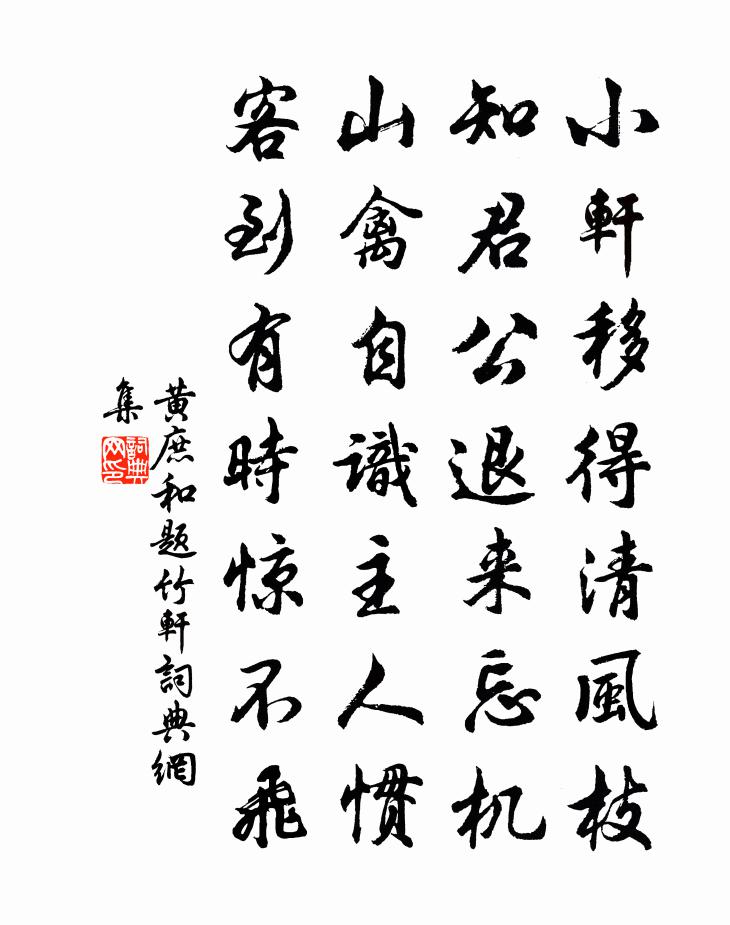 小軒移得清風枝
知君公退来忘机
山禽自識主人慣
客到有時惊不飛
黃庶和题竹軒詞典網
集
詞典
网印